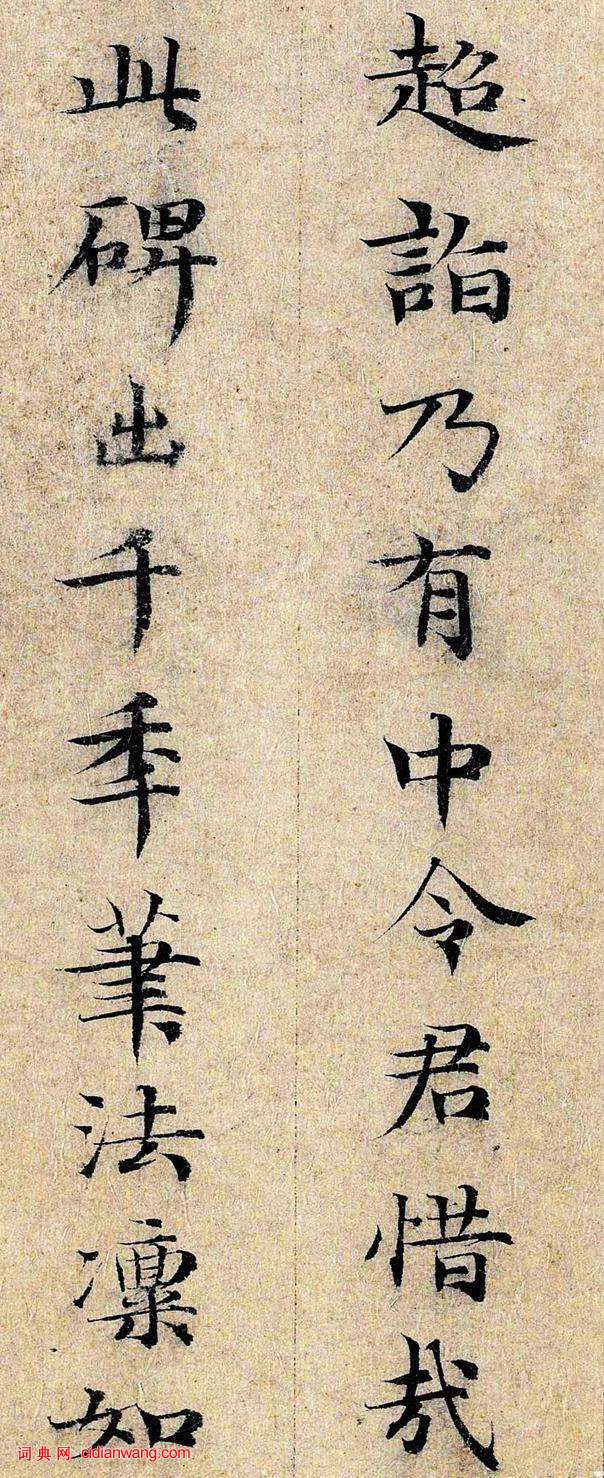 超詣乃有中令君惜哉
此碑出千秊筆法凛如
词典网 cidianwang.com